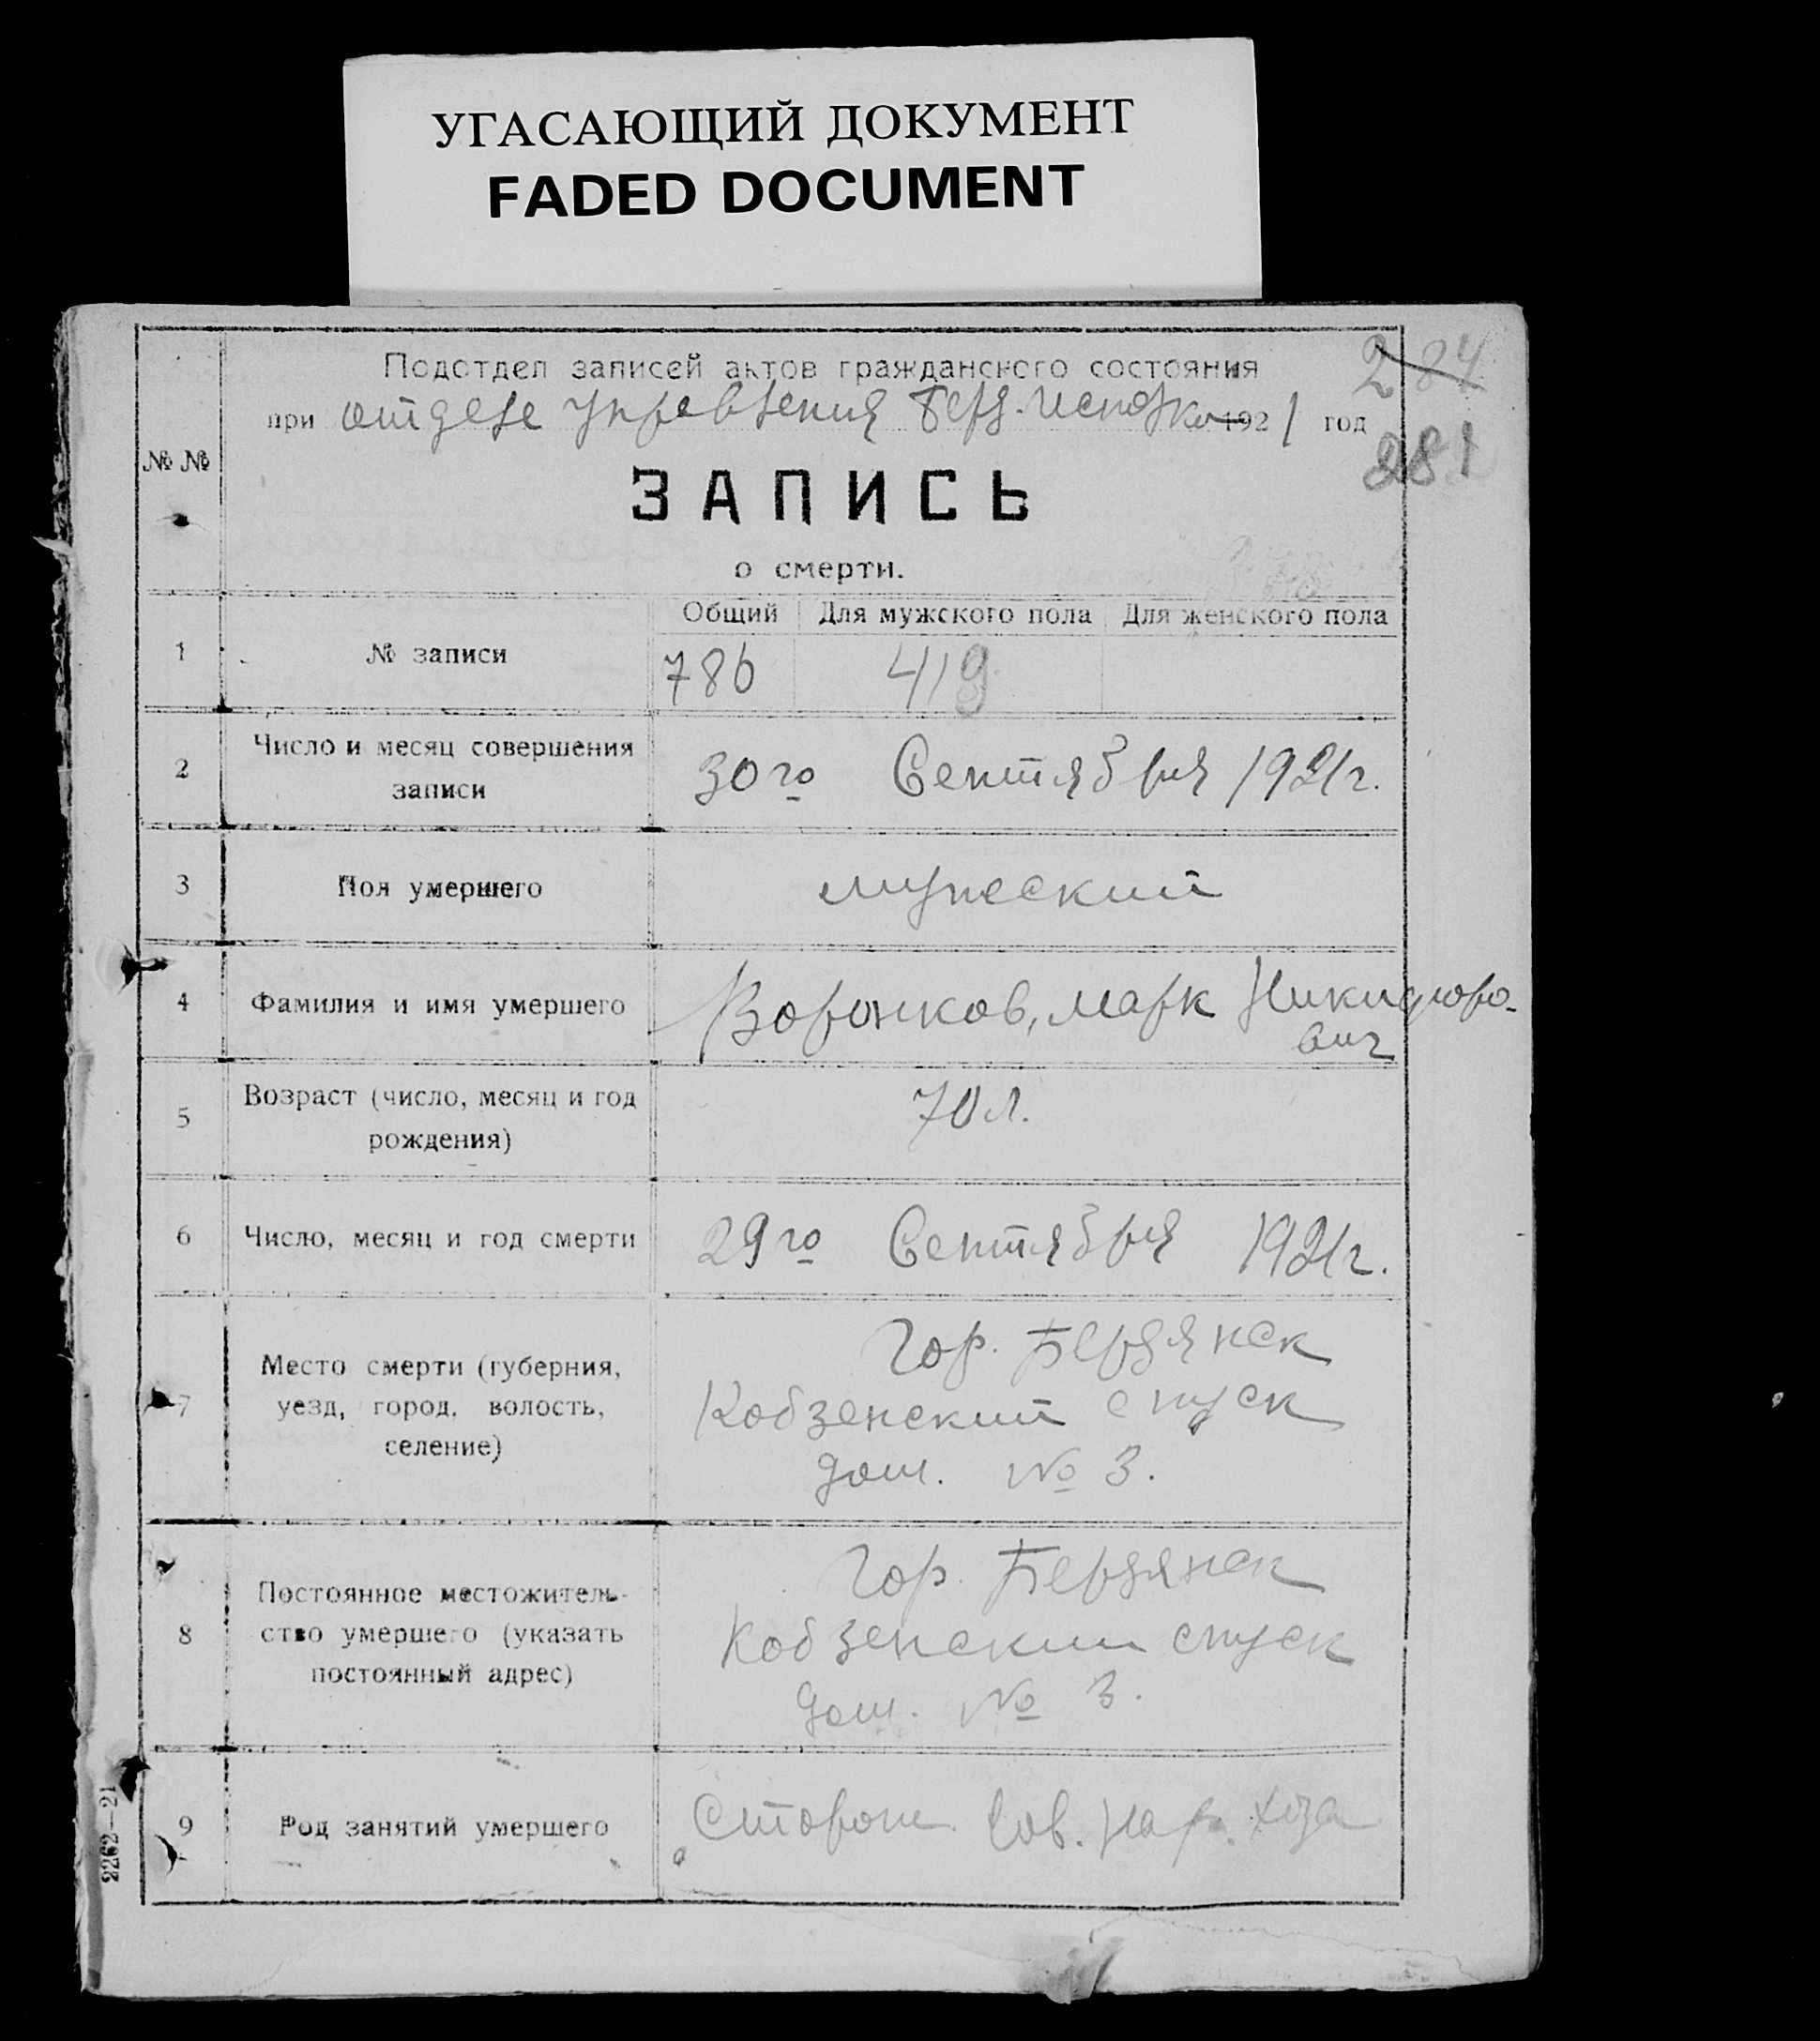 УГАСАЮЩИЙ ДОКУМЕНТ
FADED DOCUMENT
284
Подотдел записей актов гражданского состояния
при отделе управления Берд. Исполко 1921 год
281
№ №
ЗАПИСЬ
о смерти.
Общий Для мужского пола Для женского пола
1 № записи 786 419
2 Число и месяц совершения
записи
30го Сентября 1921г.
3 Пол умершего мужеский
4 Фамилия и имя умершего Воронков, Марк Никифоро-
вич
5 Возраст (число, месяц и год
рождения)
70 л.
6 Число, месяц и год смерти 29го Сентября 1921г.
7 Место смерти (губерния,
уезд, город, волость,
селение)
Гор. Бердянск
Кобзенский спуск
дом. № 3.
8 Постоянное местожитель-
ство умершего (указать
постоянный адрес)
Гор. Бердянск
Кобзенский спуск
дом. № 3.
9 Род занятий умершего Сторож Сов. Нар. Хоза
2262—21